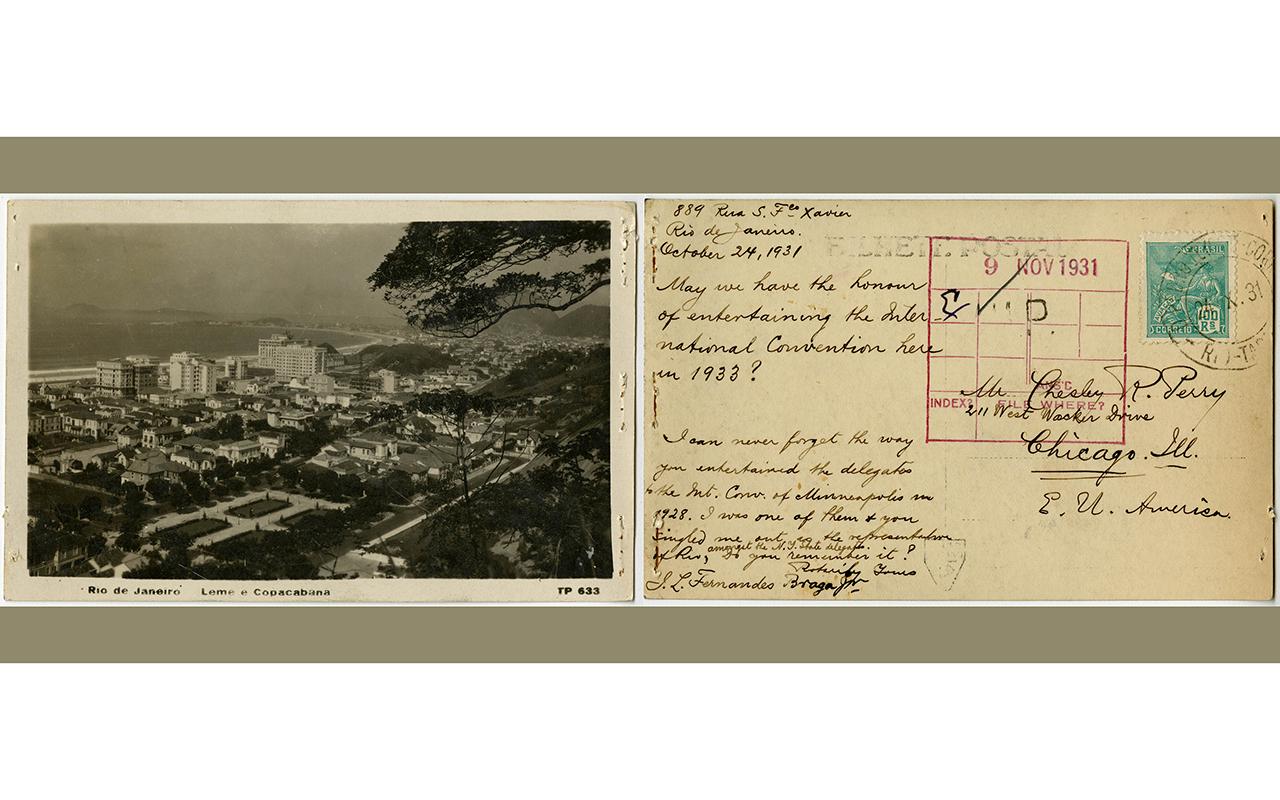 Rio de Janeiro Leme e Copacabana
TP 633
889 Rua S. Fco Xavier
Rio de Janeiro.
October 24, 1931
May we have the honour
of entertaining the Inter-
national Convention here
in 1933?
I can never forget the way
you entertained the delegates
to the Int. Conv. of Minneapolis in
1928. I was one of them & you
singled me out as the representative
of Rio, amongst the N.Y. State delegates. Do you remember it?
Yours
Fernandes Braga Jr
BILHETE POSTAL
9 NOV 1931
ANS'D
INDEX? FILE WHERE?
BRASIL
CORREIO
RS
Mr. Chesley R. Perry
211 West Wacker Drive
Chicago. Ill.
E. U. America.